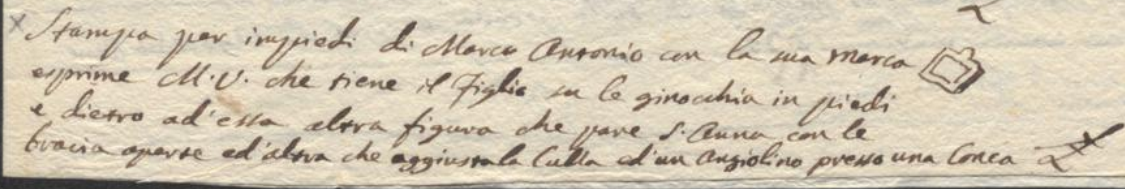 Stampa per impiedi di Marco Antonio con la sua marca
esprime M.V. che tiene il figlio su le ginocchia in piedi
e dietro ad'essa altra figura che pare S. Anna con le
bracia aperte ed'altra che aggiusta la Culla ed'un Angiolino presso una Conca